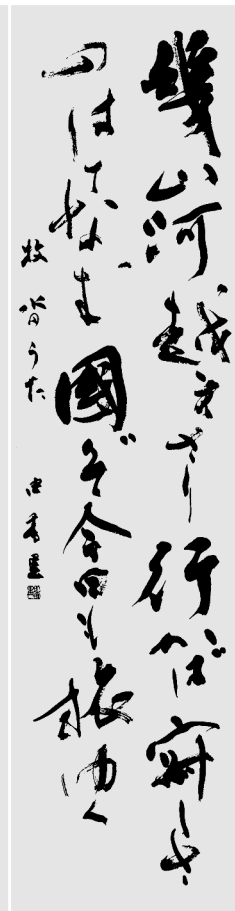 幾山河越えさり行かば寂しさ
のはてなむ國ぞ今日も旅ゆく
牧水うた